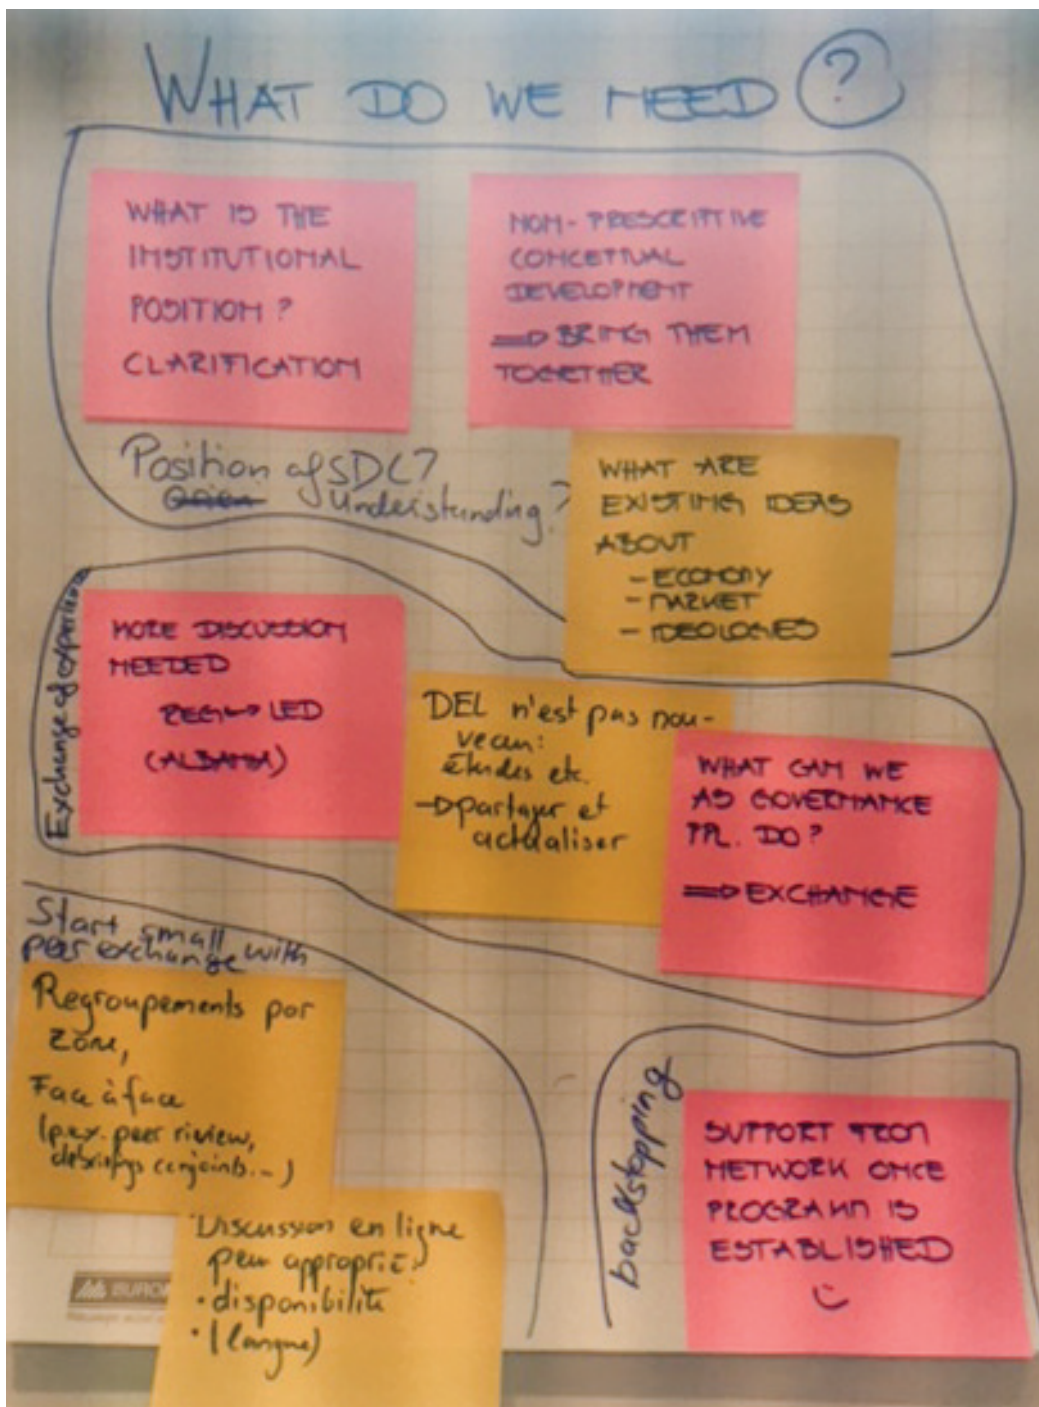 WHAT DO WE NEED ?
WHAT IS THE
INSTITUTIONAL
POSITION ?
CLARIFICATION
NON-PRESCRIPTIVE
CONCETTUAL
DEVELOPMENT
⇒ BRING THEM
TOGETHER
Position of SDC?
Understanding?
WHAT ARE
EXISTING IDEAS
ABOUT
- ECONOMY
- MARKET
- IDEOLOGIES
Exchange of experience
MORE DISCUSSION
NEEDED
LED
(ALBANIA)
DEL n'est pas nou-
veau:
Études etc.
→ partager et
actualiser
WHAT CAN WE
AS GOVERNANCE
PPL. DO?
⇒ EXCHANGE
Start small with
peer exchange
Regroupements par
zone,
Face à face
(p.ex. peer riview,
debriefings conjoints...)
Discussion en ligne
peu approprié:
• disponibilité
• (langue)
backstopping
SUPPORT FROM
NETWORK ONCE
PROGRAMM IS
ESTABLISHED